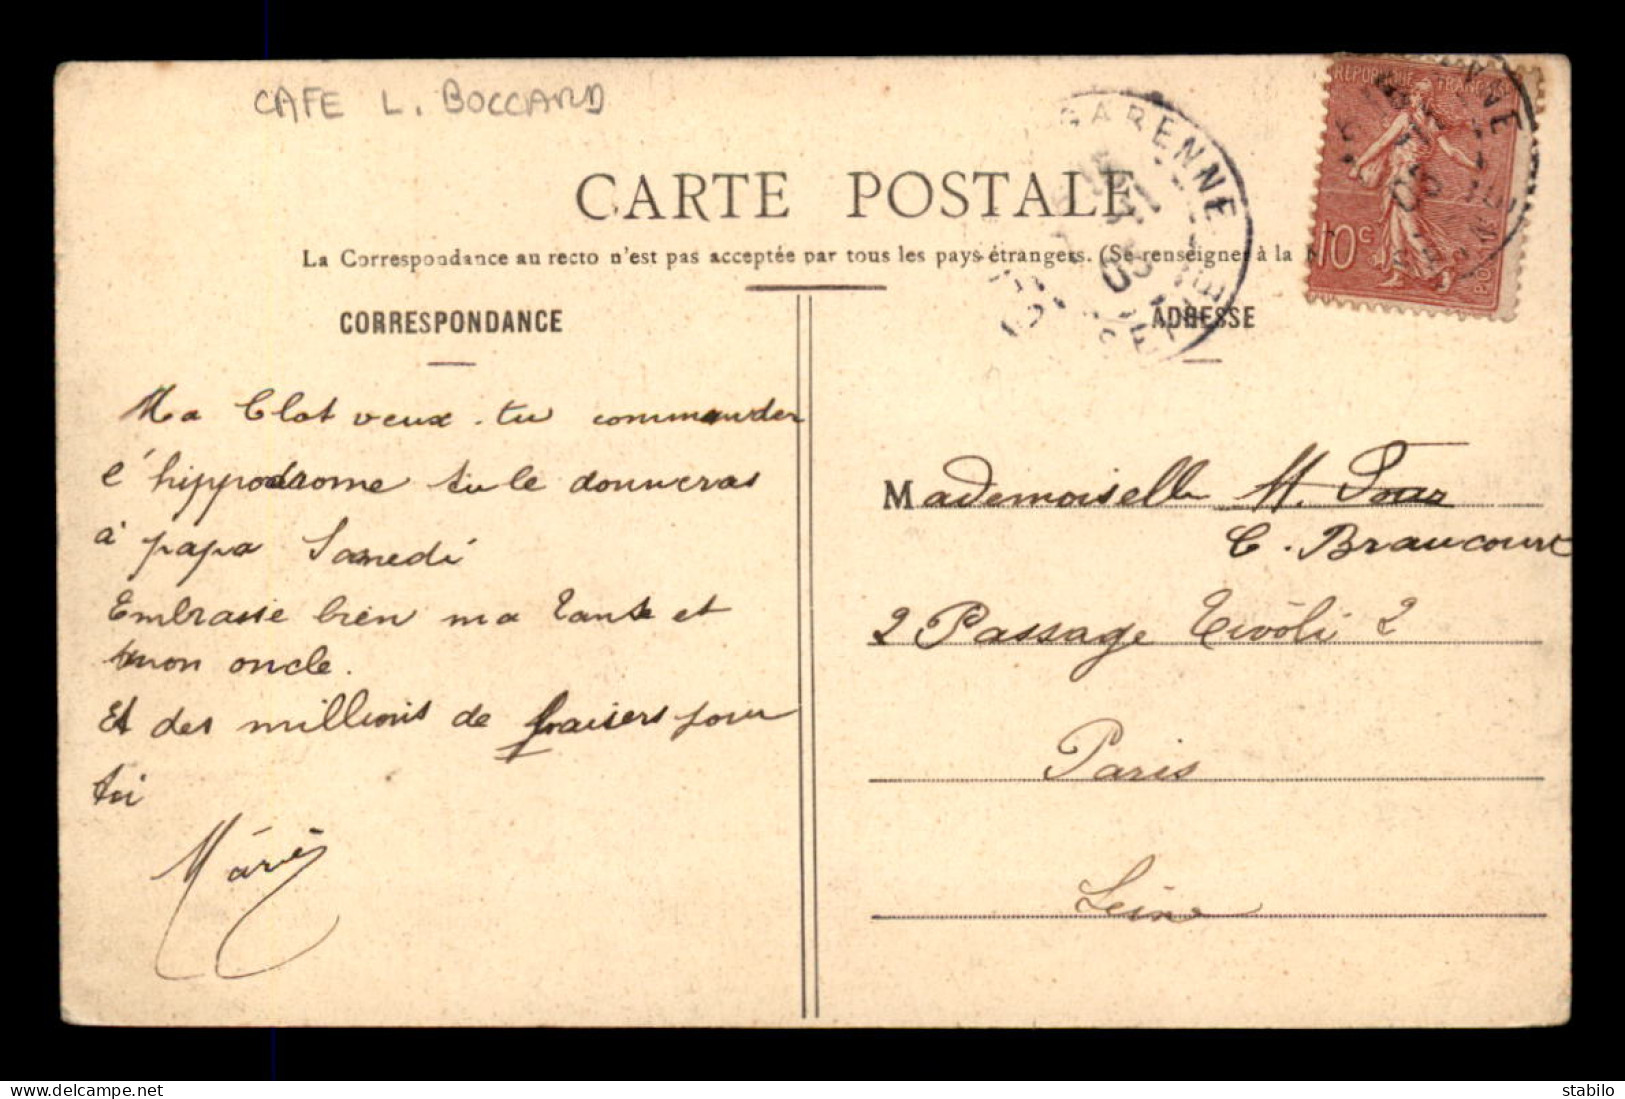 CAFE L. BOCCARD
REPUBLIQUE FRANÇAISE
10c
GARENNE
CARTE POSTALE
La Correspondance au recto n'est pas acceptée par tous les pays étrangers. (Se renseigner à la
CORRESPONDANCE
ADRESSE
Ma Clot veux-tu commander
l'hippodrome tu le donneras
à papa Samedi
Embrasse bien ma Tante et
mon oncle.
Et des millions de baisers pour
toi
Marie
Mademoiselle M.
C. Braucourt
2 Passage Tivôli 2
Paris
Seine
delcampe.net
stabilo